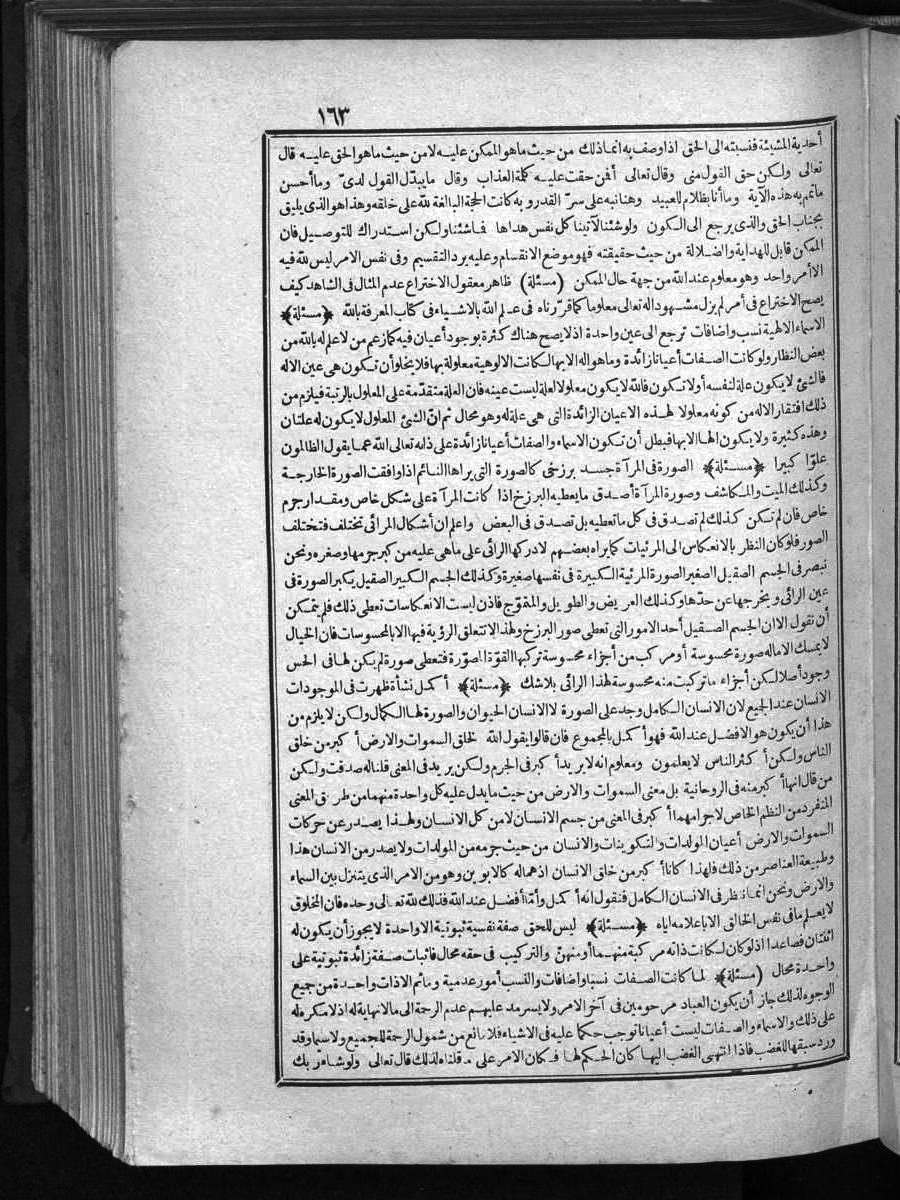 ١٦٣
أحدية المشيئة فنسبته الى الحق اذا وصف به انما ذلك من حيث ما هو الممكن عليه لا من حيث ما هو الحق عليه قال
تعالى ولكن حق القول منى وقال تعالى أفمن حقت عليه كلمة العذاب وقال ما يبدّل القول لدىّ وما أحسن
ما تم به هذه الآية وما أنا بظلام للعبيد وهنا نبه على سرّ القدر وبه كانت الحجة البالغة لله على خلقه وهذا هو الذى يليق
بجناب الحق والذى يرجع الى الكون ولو شئنا لآتينا كل نفس هداها فاشئنا ولكن استدراك للتوصيل فان
الممكن قابل للهداية والضلالة من حيث حقيقته فهو موضع الانقسام وعليه يرد التقسيم وفى نفس الامر ليس لله فيه
الا أمر واحد وهو معلوم عند الله من جهة حال الممكن (مسئلة) ظاهر معقول الاختراع عدم المثال فى الشاهد كيف
يصح الاختراع فى أمر لم يزل مشهودا له تعالى معلوما كما قرّرناه فى علم الله بالاشياء فى كتاب المعرفة بالله ﴿مسئلة﴾
الاسماء الالهية نسب واضافات ترجع الى عين واحدة اذ لا يصح هناك كثرة بوجود أعيان فيه كما زعم من لا علم له بالله من
بعض النظار ولو كانت الصفات أعيانا زائدة وما هو اله الا بها لكانت الالوهية معلولة بها فلا يخلو أن تكون هى عين الاله
فالشئ لا يكون علة لنفسه أو لا تكون فالله لا يكون معلولا لعلة ليست عينه فان العلة متقدّمة على المعلول بالرتبة فيلزم من
ذلك افتقار الاله من كونه معلولا لهذه الاعيان الزائدة التى هى علة له وهو محال ثم انّ الشئ المعلول لا يكون له علتان
وهذه كثيرة ولا يكون الها الا بها فبطل أن تكون الاسماء والصفات أعيانا زائدة على ذاته تعالى الله عما يقول الظالمون
علوّا كبيرا ﴿مسئلة﴾ الصورة فى المرآة جسد برزخى كالصورة التى يراها النائم اذا وافقت الصورة الخارجة
وكذلك الميت والمكاشف وصورة المرآة أصدق ما يعطيه البرزخ اذا كانت المرآة على شكل خاص ومقدار جرم
خاص فان لم تكن كذلك لم تصدق فى كل ما تعطيه بل تصدق فى البعض واعلم ان أشكال المرائى تختلف فتختلف
الصور فلو كان النظر بالانعكاس الى المرئيات كما يراه بعضهم لادركها الرائى على ما هى عليه من كبر جرمها وصغره ونحن
نبصر فى الجسم الصقيل الصغير الصورة المرئية الكبيرة فى نفسها صغيرة وكذلك الجسم الكبير الصقيل يكبر الصورة فى
عين الرائى ويخرجها عن حدّها وكذلك العريض والطويل والمتموّج فاذن ليست الانعكاسات تعطى ذلك فلم يتمكن
أن نقول الا ان الجسم الصقيل أحد الامور التى تعطى صور البرزخ ولهذا لا تتعلق الرؤية فيها الا بالمحسوسات فان الخيال
لا يمسك الا ما له صورة محسوسة أو مركب من أجزاء محسوسة تركبها القوّة المصوّرة فتعطى صورة لم يكن لها فى الحس
وجود أصلا لكن أجزاء ما تركبت منه محسوسة لهذا الرائى بلا شك ﴿مسئلة﴾ أكمل نشأة ظهرت فى الموجودات
الانسان عند الجميع لان الانسان الكامل وجد على الصورة لا الانسان الحيوان والصورة لها الكمال ولكن لا يلزم من
هذا أن يكون هو الافضل عند الله فهو أكمل بالمجموع فان قالوا يقول الله لخلق السموات والارض أكبر من خلق
الناس ولكن أكثر الناس لا يعلمون ومعلوم انه لا يريد أكبر فى الجرم ولكن يريد فى المعنى قلنا له صدقت ولكن
من قال انها أكبر منه فى الروحانية بل معنى السموات والارض من حيث ما يدل عليه كل واحدة منهما من طريق المعنى
المنفرد من النظم الخاص لاجرامهما أكبر فى المعنى من جسم الانسان لا من كل الانسان ولهذا يصدر عن حركات
السموات والارض أعيان المولدات والتكوينات والانسان من حيث جرمه من المولدات ولا يصدر من الانسان هذا
وطبيعة العناصر من ذلك فلهذا كانا أكبر من خلق الانسان اذ هما له كالابوين وهو من الامر الذى يتنزل بين السماء
والارض ونحن انما ننظر فى الانسان الكامل فنقول انه أكمل وأمّا أفضل عند الله فذلك لله تعالى وحده فان المخلوق
لا يعلم ما فى نفس الخالق الا باعلامه اياه ﴿مسئلة﴾ ليس للحق صفة نفسية ثبوتية الا واحدة لا يجوز أن يكون له
اثنتان فصاعدا اذ لو كان لكانت ذاته مركبة منهما أو منهنّ والتركيب فى حقه محال فاثبات صفة زائدة ثبوتية على
واحدة محال (مسئلة﴾ لما كانت الصفات نسبا واضافات والنسب أمور عدمية وما ثم الا ذات واحدة من جميع
الوجوه لذلك جاز أن يكون العباد مرحومين فى آخر الامر ولا يسرمد عليهم عدم الرحمة الى ما لا نهاية له اذ لا مكره له
على ذلك والاسماء والصفات ليست أعيانا توجب حكما عليه فى الاشياء فلا مانع من شمول الرحمة للجميع ولا سيما وقد
ورد سبقها للغضب فاذا انتهى الغضب اليها كان الحكم لها فكان الامر على ما قلناه لذلك قال تعالى ولو شاء ربك